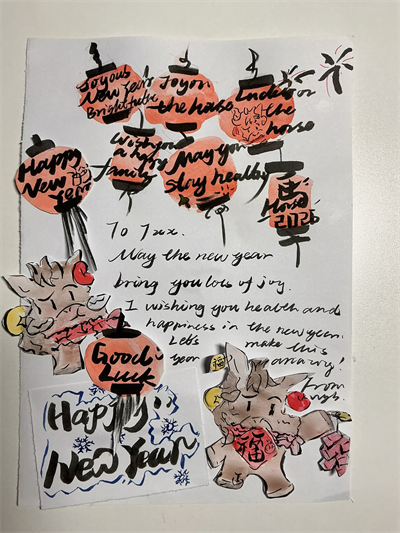 Joyous
New Year
Bright future
Joy on
the house
Endeavor
the
house
Happy
New
Year
Wish you
a happy
family
May you
stay healthy
Horse
2026
To Txx.
May the new year
bring you lots of joy.
I wishing you health and
happiness in the new year.
Let's make this
year amazing!
From
Good
Luck
福
Happy
New Year
福